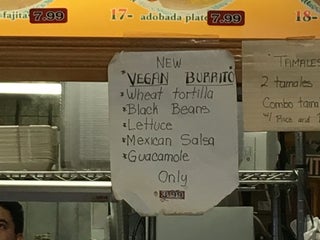 fajita 7.99
17- adobada plate 7.99
18-
NEW
*VEGAN BURRITO
*Wheat tortilla
*Black Beans
*Lettuce
*Mexican Salsa
*Guacamole
Only
TAMALES
2 tamales
Combo tama
w/ Rice and